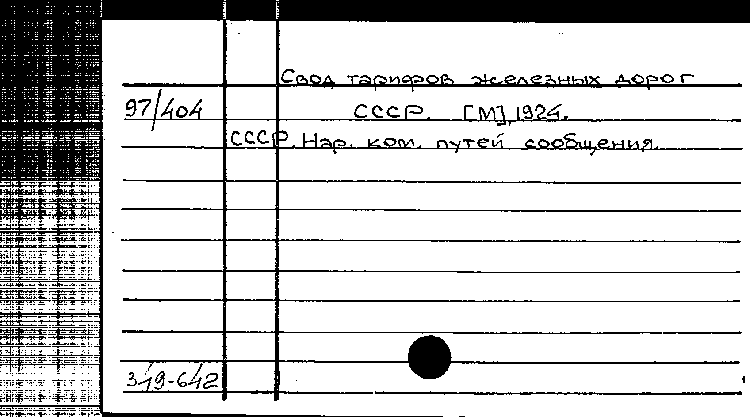 Свод тарифов железных дорог
97/404 СССР. [М], 1924.
СССР. Нар. ком. путей сообщения.
349-642